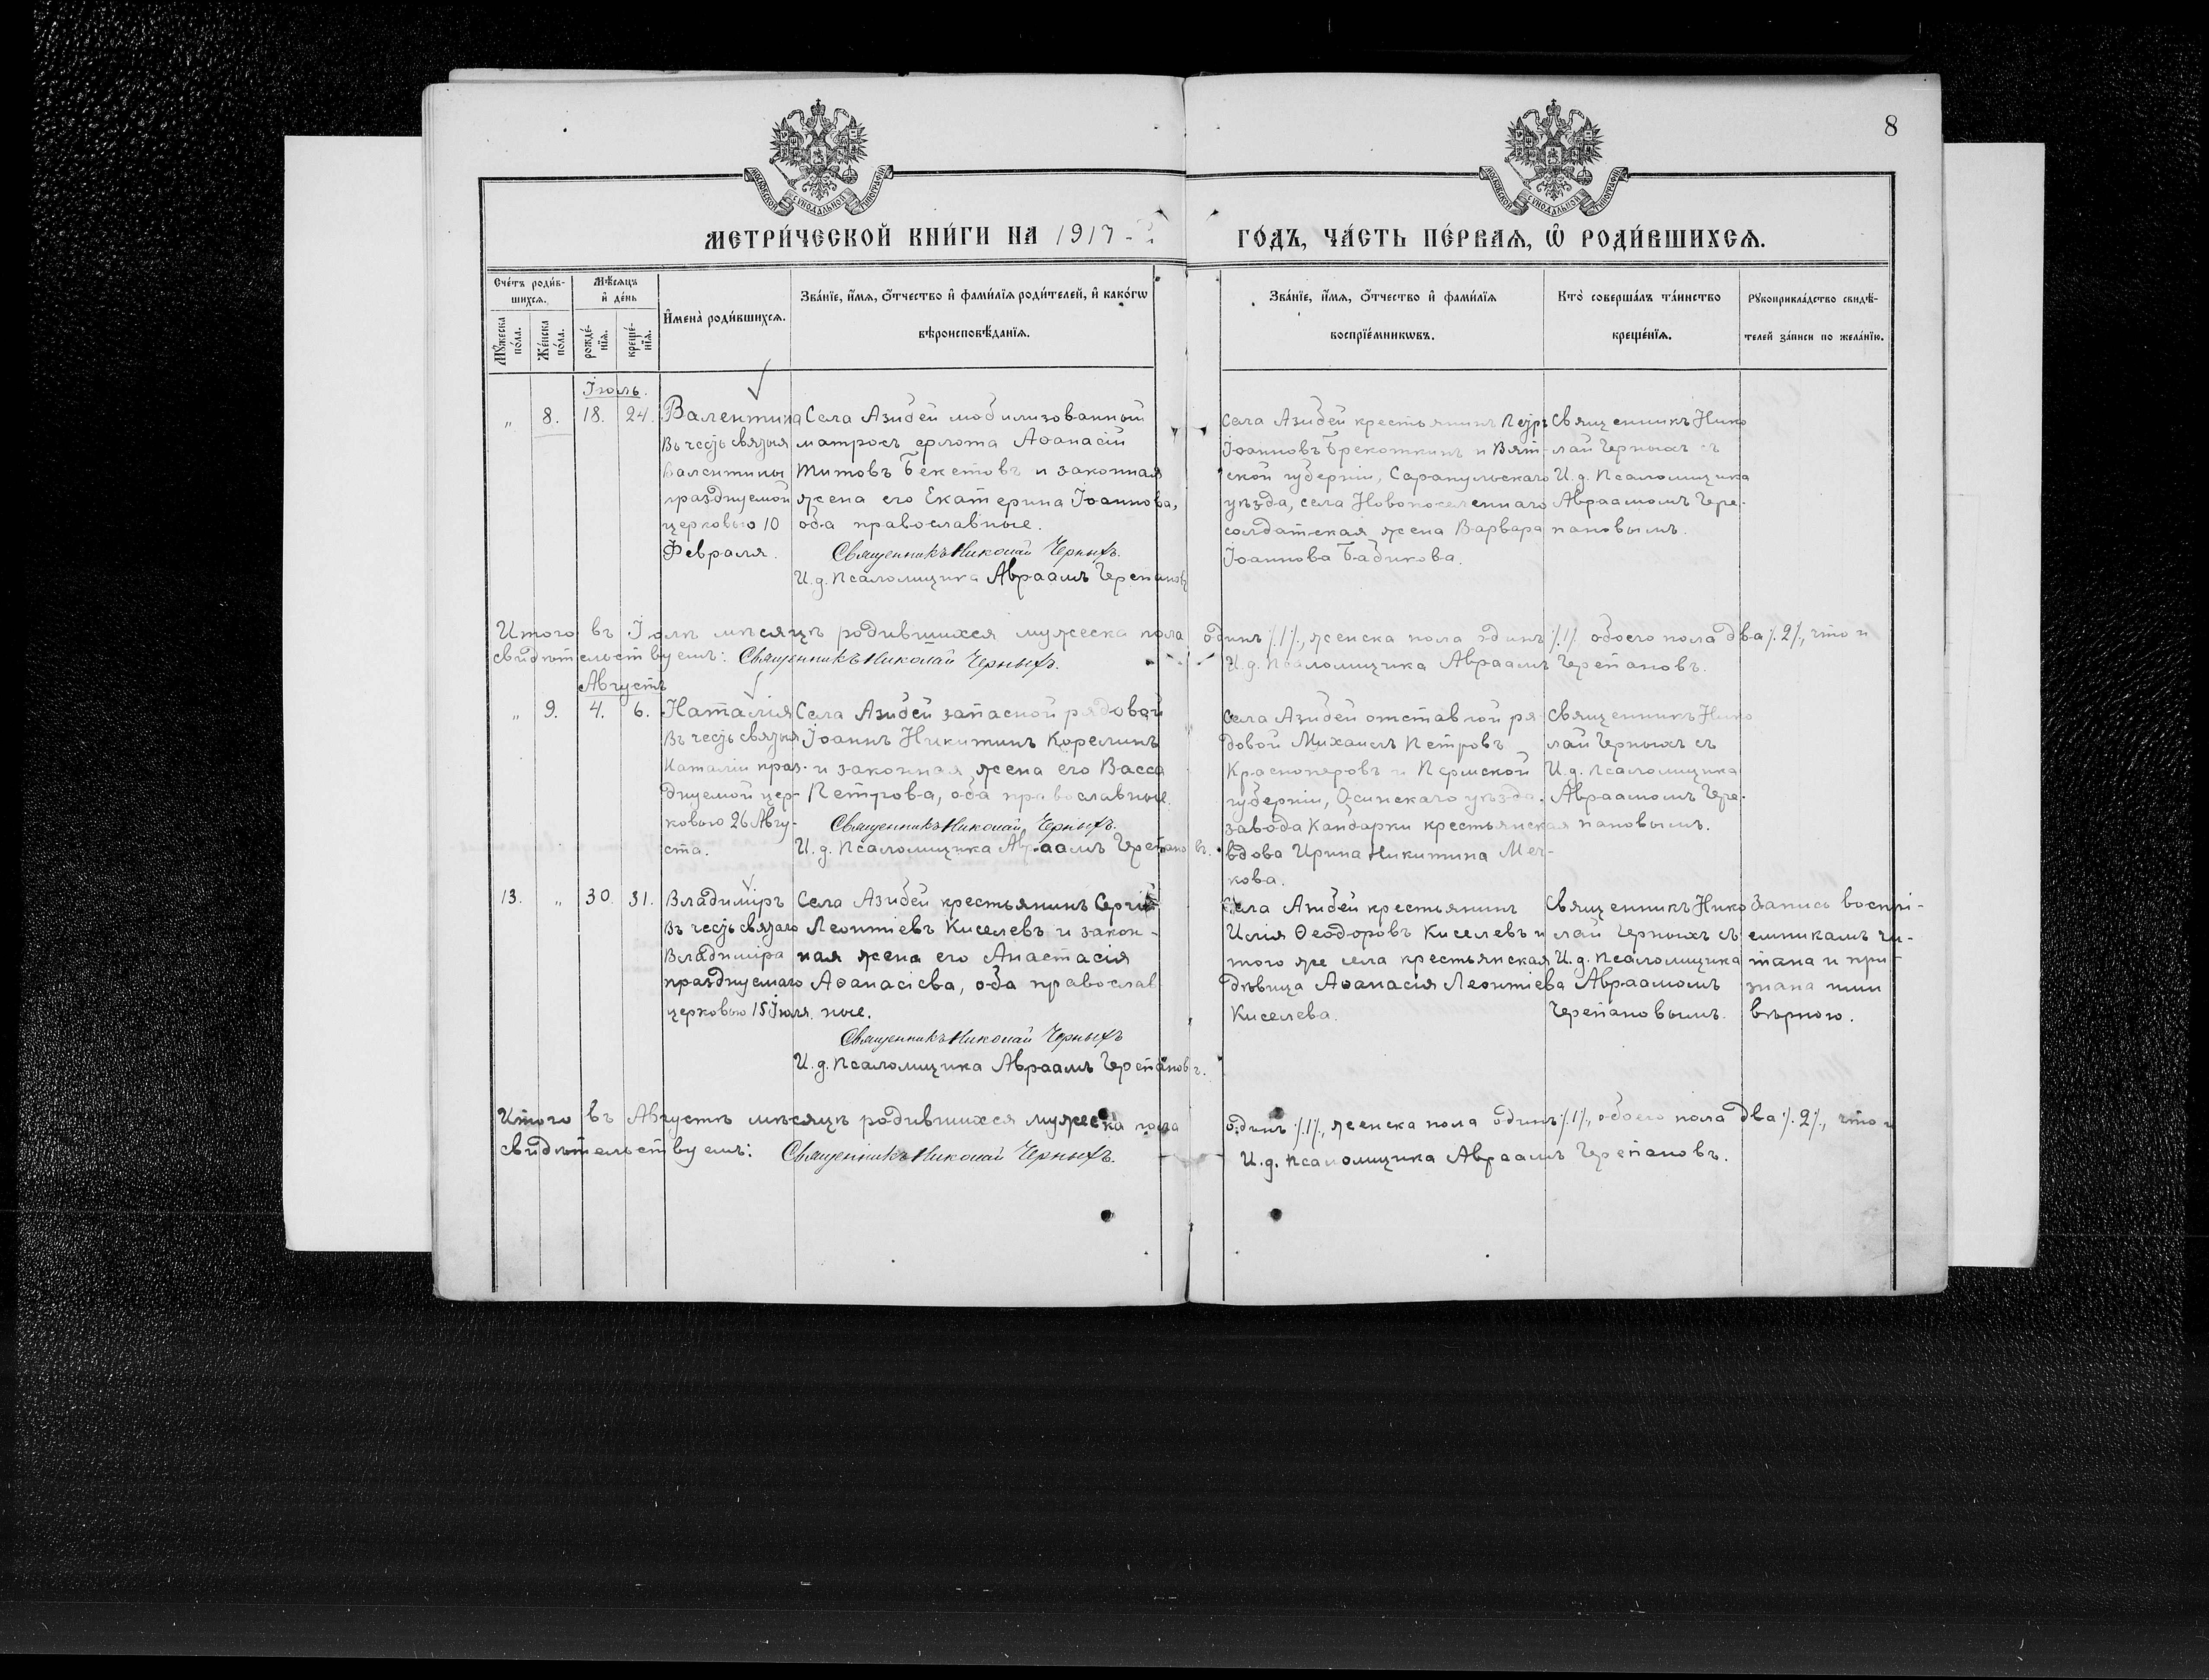 8
МОСКОВСКОЙ СѴНОДАЛЬНОЙ ТИПОГРАФІИ
МОСКОВСКОЙ СѴНОДАЛЬНОЙ ТИПОГРАФІИ
МЕТРИ́ЧЕСКОЙ КНИ́ГИ НА 1917-
ГО́ДЪ, ЧА́СТЬ ПЕ́РВАЯ, Ѽ РОДИ́ВШИХСѦ.
Сче́тъ роди́в-
шихсѧ.
Мꙋ́жеска по́ла.
Же́нска по́ла.
Мѣ́сѧцъ
и҆ де́нь
рожде́-
нїѧ.
креще́-
нїѧ.
И҆мена̀ роди́вшихсѧ.
Зва́нїе, и҆́мѧ, ѻ҆́тчество и҆ фами́лїѧ роди́телей, и҆ како́гѡ
вѣроисповѣ́данїѧ.
Зва́нїе, и҆́мѧ, ѻ҆́тчество и҆ фами́лїѧ
воспрїе́мникѡвъ.
Кто̀ соверша́лъ та́инство
креще́нїѧ.
Рꙋкоприкла́дство свидѣ́-
телей за́писи по жела́нїю.
Іюль.
„ 8. 18. 24.
Валентина
Въ честь святыя
Валентины
празднуемой
церковью 10
Февраля.
Села Азибей мобилизованный
матросъ флота Аѳанасій
Титовъ Бекетовъ и законная
жена его Екатерина Іоаннова,
оба православные.
Священникъ Николай Черныхъ.
И.д. Псаломщика Авраамъ Черепановъ
Села Азибей крестьянинъ Петръ
Іоанновъ Брекоткинъ и Вят-
ской губерніи, Сарапульскаго
уѣзда, села Новопоселеннаго
солдатская жена Варвара
Іоаннова Бабикова.
Священникъ Нико
лай Черныхъ съ
И.д. Псаломщика
Авраамомъ Чере-
пановымъ.
Итого въ Іюлѣ мѣсяцѣ родившихся мужеска пола одинъ /.1/., женска пола одинъ /.1/. обоего пола два /.2/., что и
свидѣтельствуемъ: Священникъ Николай Черныхъ. И.д. Псаломщика Авраамъ Черепановъ.
Августъ
„ 9. 4. 6.
Наталія
Въ честь святыя
Наталіи праз-
днуемой цер-
ковью 26 Авгу-
ста.
Села Азибей запасной рядовой
Іоаннъ Никитинъ Корелинъ
и законная жена его Васса
Петрова, оба православные.
Священникъ Николай Черныхъ.
И.д. Псаломщика Авраамъ Черепановъ.
Села Азибей отставной ря-
довой Михаилъ Петровъ
Красноперовъ и Пермской
губерніи, Осинскаго уѣзда.
завода Камбарки крестьянская
вдова Ирина Никитина Меч-
кова.
Священникъ Нико
лай Черныхъ съ
И.д. Псаломщика
Авраамомъ Чере-
пановымъ.
13. „ 30. 31.
Владиміръ
Въ честь святаго
Владиміра
празднуемаго
церковью 15 Іюля.
Села Азибей крестьянинъ Сергій
Леонтіевъ Киселевъ и закон-
ная жена его Анастасія
Аѳанасіева, оба православ-
ные.
Священникъ Николай Черныхъ
И.д. Псаломщика Авраамъ Черепановъ.
Села Азибей крестьянинъ
Илія Ѳеодоровъ Киселевъ и
того же села крестьянская
дѣвица Аѳанасія Леонтіева
Киселева.
Священникъ Нико
лай Черныхъ съ
И.д. Псаломщика
Авраамомъ
Черепановымъ.
Запись воспрі-
емникамъ чи-
тана и при-
знана ими
вѣрною.
Итого въ Августѣ мѣсяцѣ родившихся мужеска пола одинъ /.1/., женска пола одинъ /.1/., обоего пола два /.2/., что и
свидѣтельствуемъ: Священникъ Николай Черныхъ. И.д. Псаломщика Авраамъ Черепановъ.